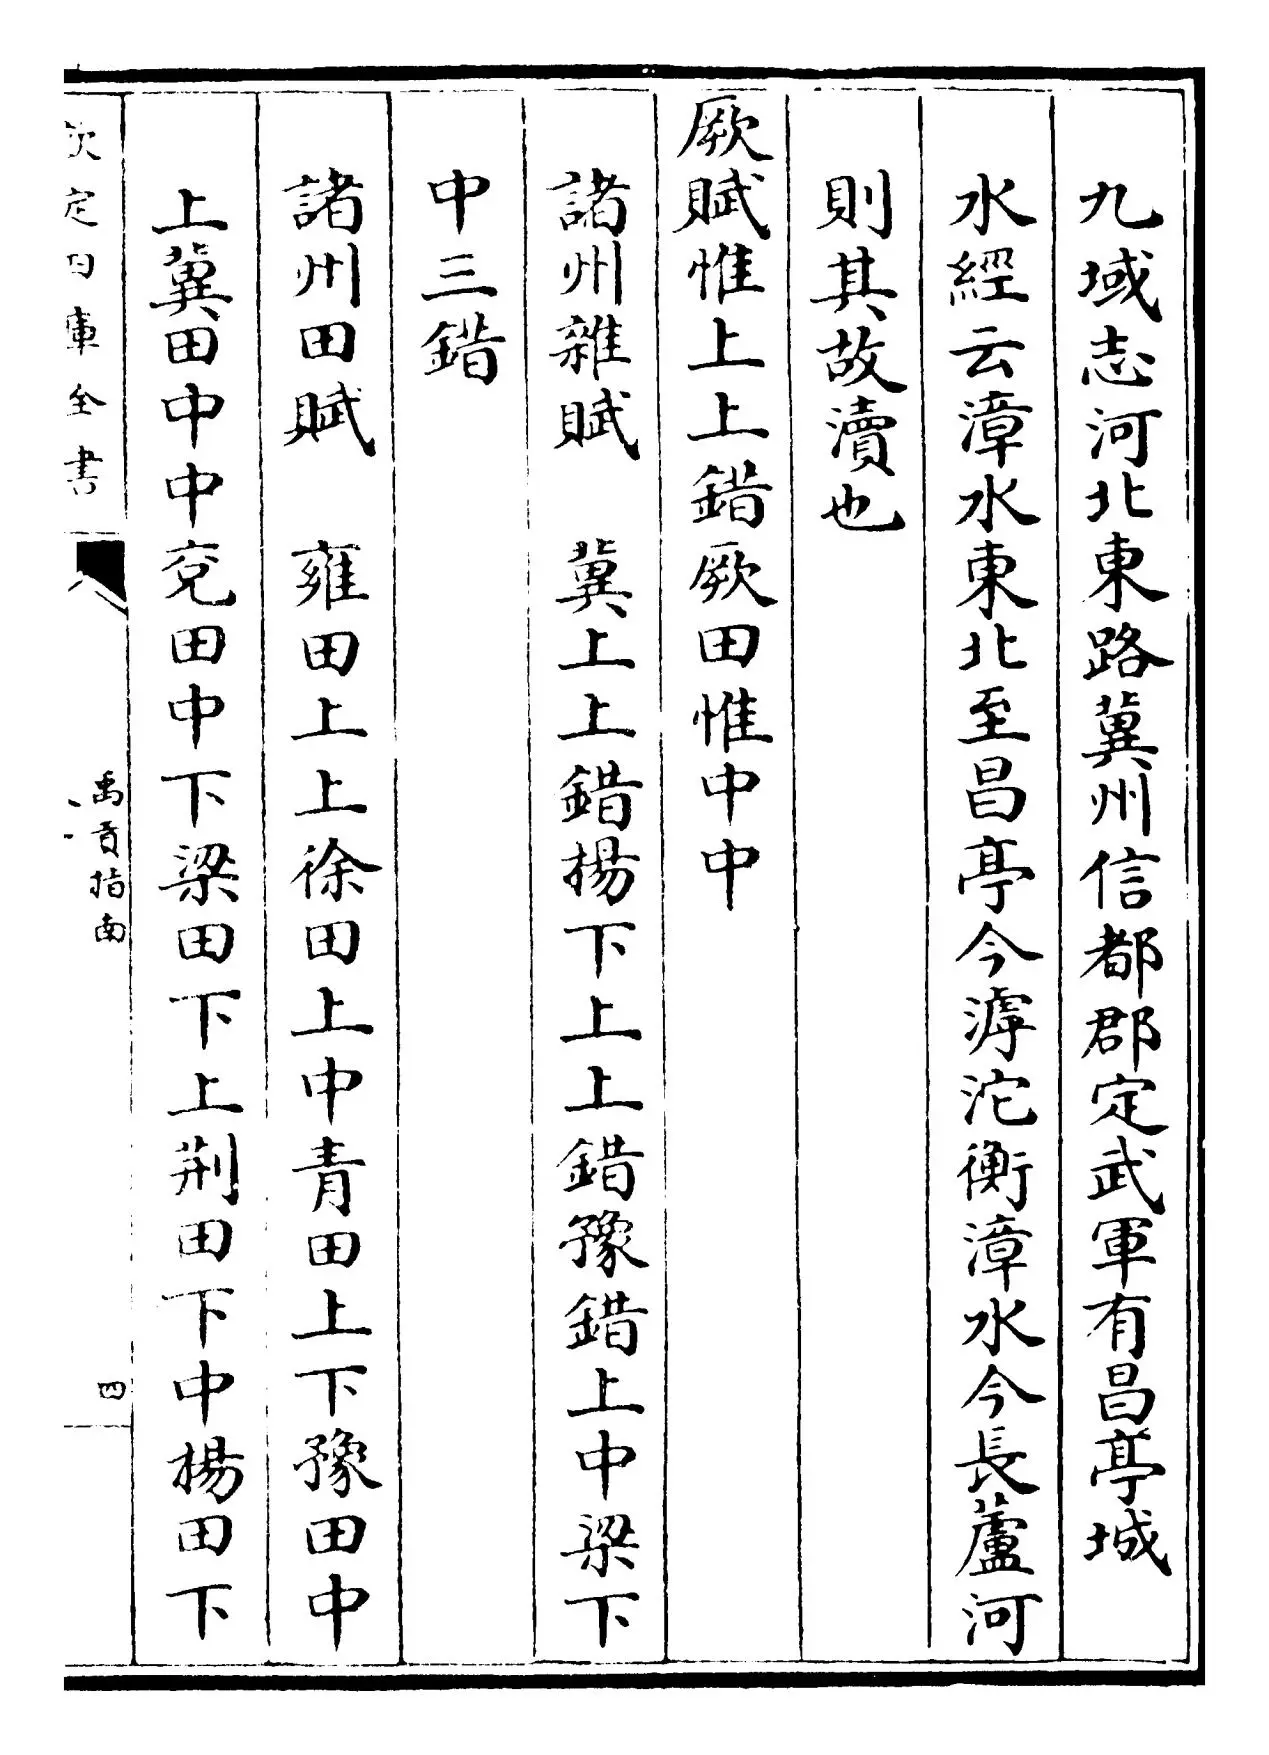 九域志河北東路冀州信都郡定武軍有昌亭城
水經云漳水東北至昌亭今滹沱衡漳水今長蘆河
則其故瀆也
厥賦惟上上錯厥田惟中中
諸州雜賦　冀上上錯楊下上上錯豫錯上中梁下
中三錯
諸州田賦　雍田上上徐田上中青田上下豫田中
上冀田中中兗田中下梁田下上荆田下中楊田下
欽定四庫全書
禹貢指南
四